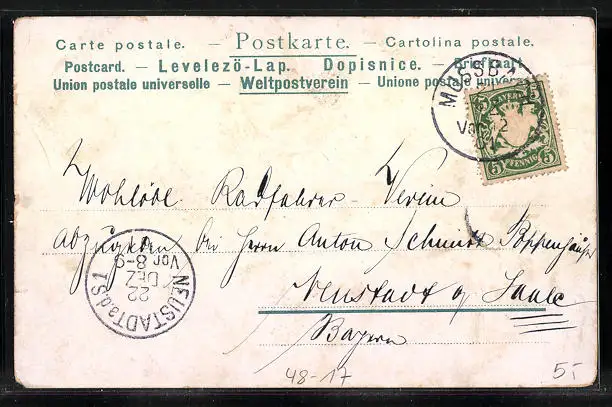 Carte postale. — Postkarte. — Cartolina postale.
Postcard. — Levelező-Lap. Dopisnice. — Briefkaart
Union postale universelle — Weltpostverein — Union postale univers
MOSSBA
BAYERN
5 PFENNIG 5
Wohllöbl. Radfahrer-Verein
abzugeben bei Herrn Anton Schmidt
Neustadt a/ Saale
Bayern
NEUSTADT a.d.S. 1
22
DEZ
Vor. 8-9
48-17
5.-